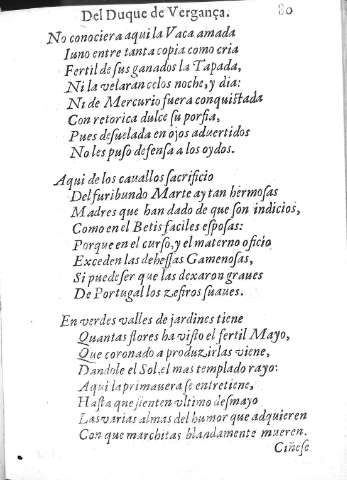 Del Duque de Vergança. 80
No conociera aqui la Vaca amada
Iuno entre tanta copia como cria
Fertil de sus ganados la Tapada,
Ni la velaran celos noche, y dia:
Ni de Mercurio fuera conquistada
Con retorica dulce su porfia,
Pues desuelada en ojos aduertidos
No les puso defensa a los oydos.
Aqui de los cauallos sacrificio
Del furibundo Marte ay tan hermosas
Madres que han dado de que son indicios,
Como en el Betis faciles esposas:
Porque en el curso, y el materno oficio
Exceden las dehessas Gamenosas,
Si puede ser que las dexaron graues
De Portugal los zefiros suaues.
En verdes valles de jardines tiene
Quantas flores ha visto el fertil Mayo,
Que coronado a produzirlas viene,
Dandole el Sol, el mas templado rayo:
Aqui la primauera se entretiene,
Hasta que sienten vltimo desmayo
Las varias almas del humor que adquieren
Con que marchitas blandamente mueren.
Ciñese